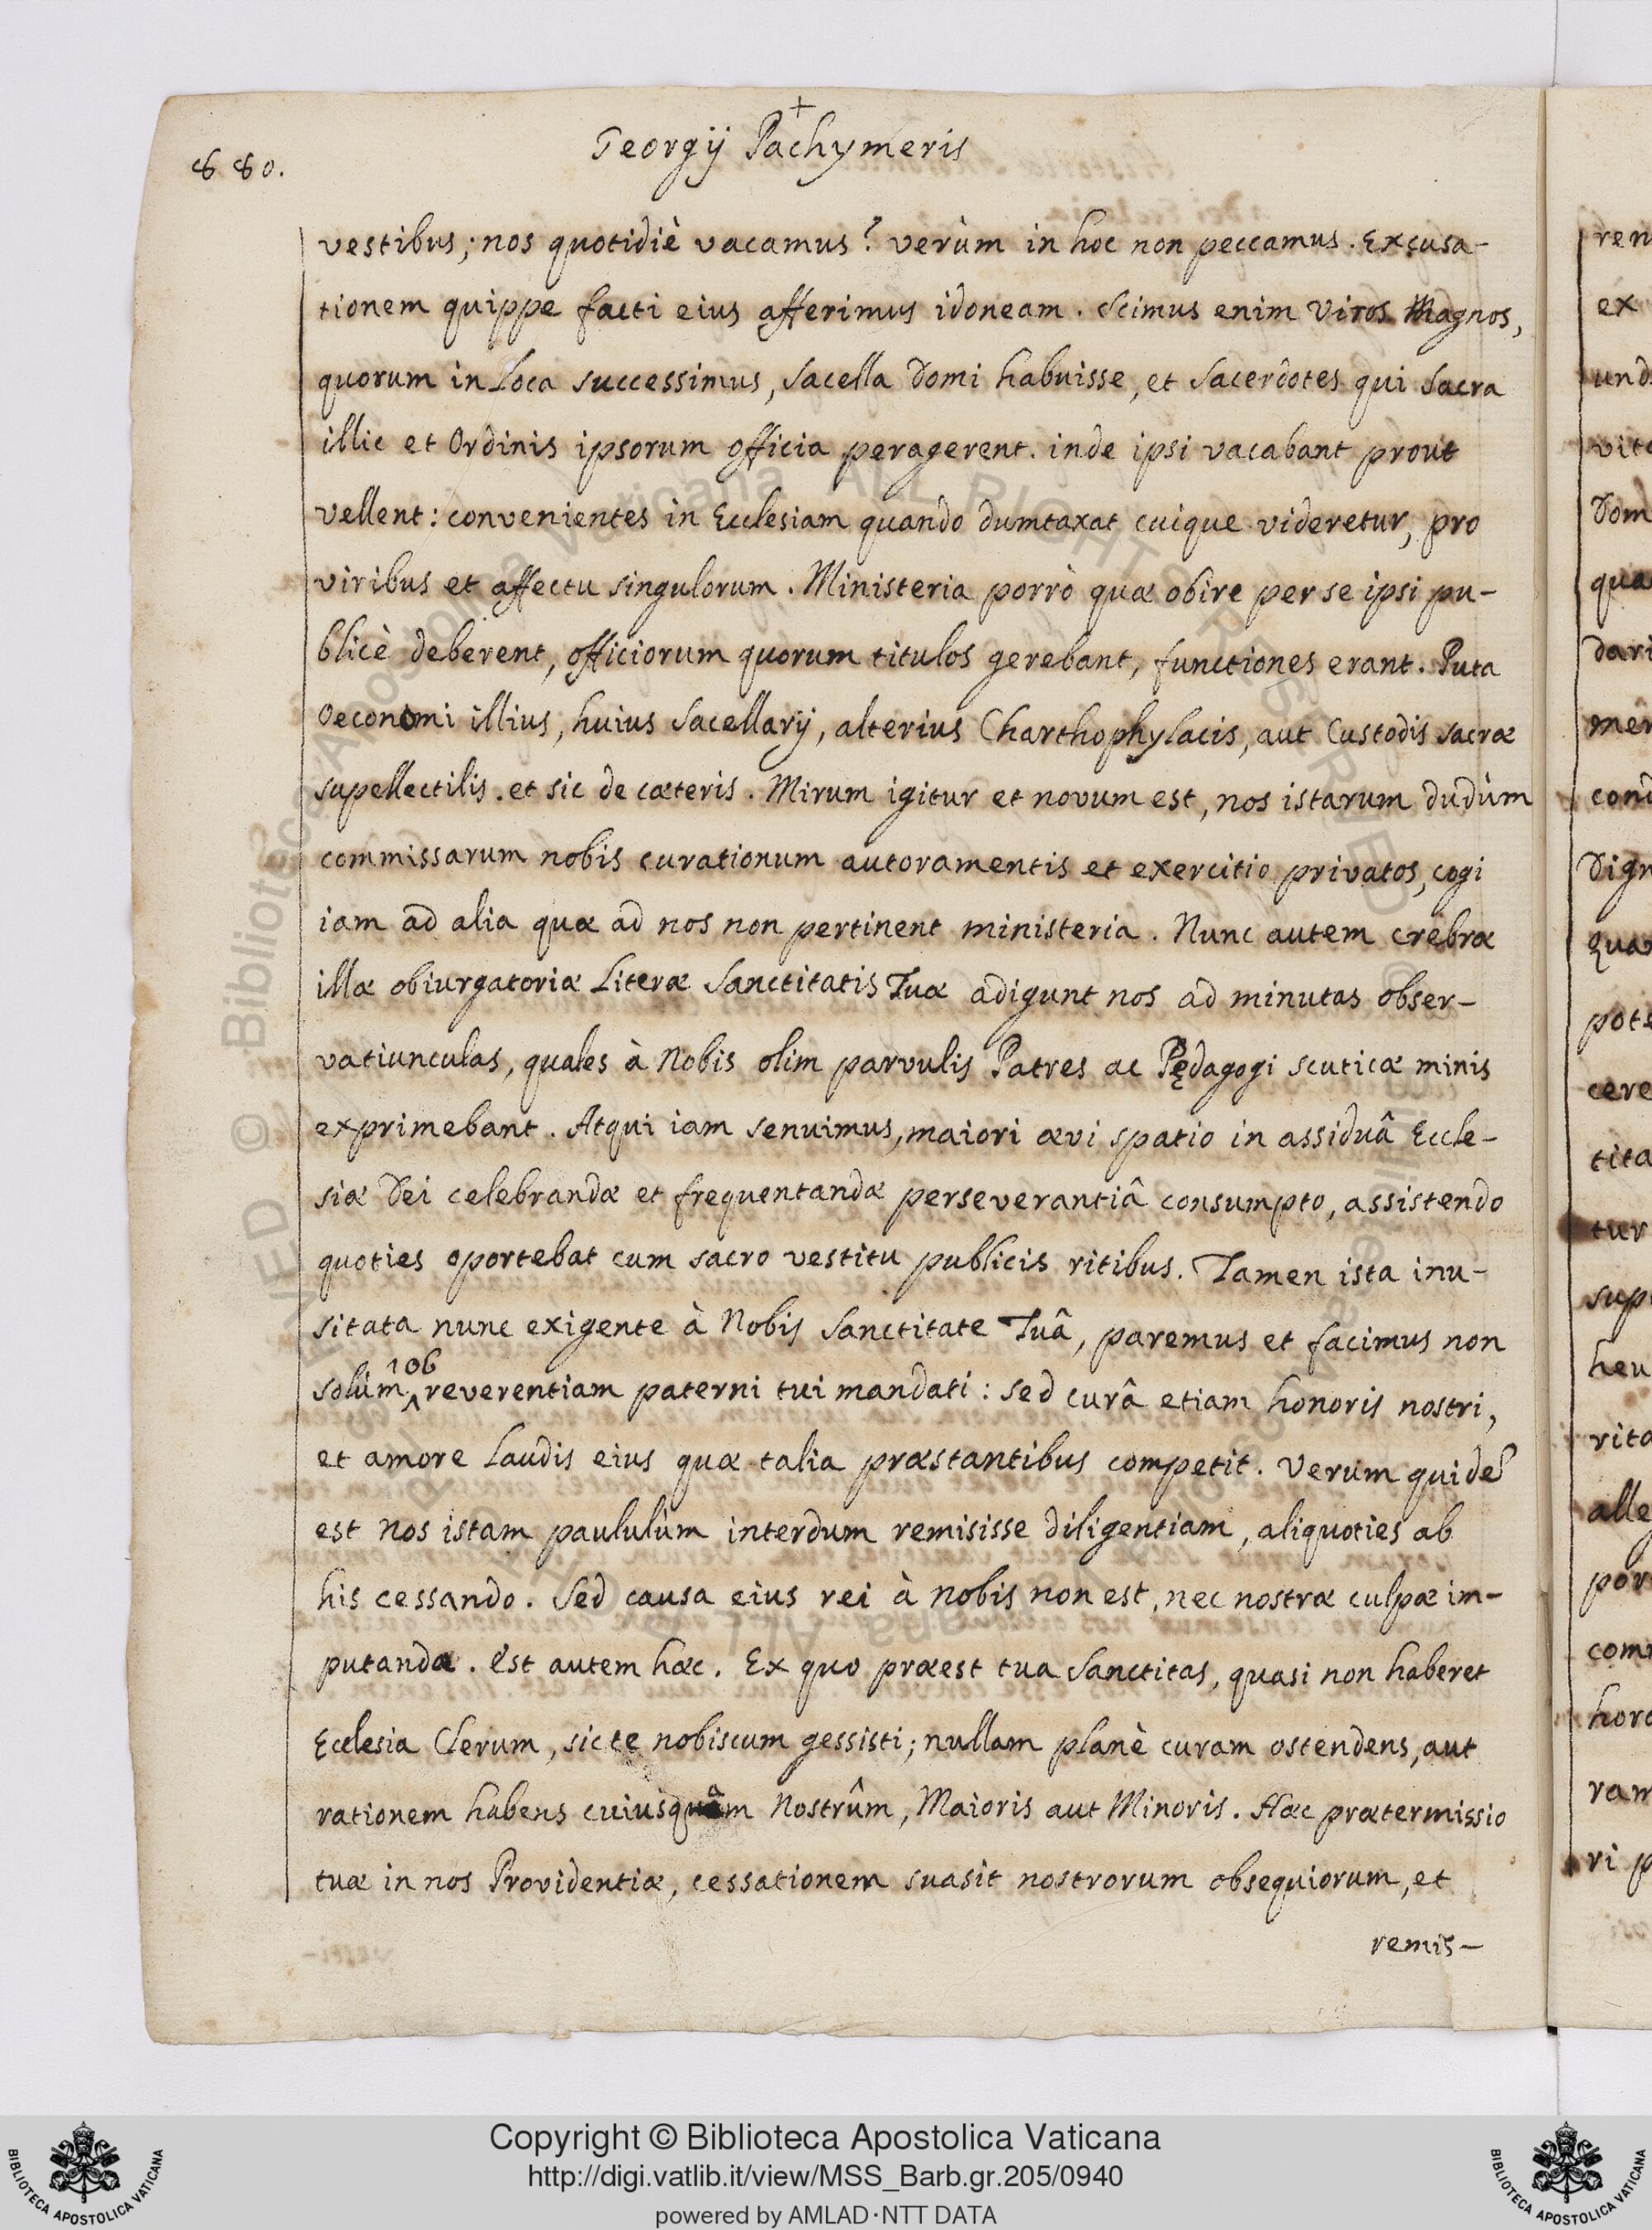 880.
+
Georgij Pachymeris
vestibus; nos quotidiè vacamus? verùm in hoc non peccamus. Excusa-
tionem quippe facti eius afferimus idoneam. Scimus enim Viros Magnos,
quorum in Loca successimus, Sacella Domi habuisse, et Sacerdotes qui Sacra
illic et Ordinis ipsorum officia peragerent. inde ipsi vacabant prout
vellent: convenientes in Ecclesiam quando dumtaxat cuique videretur, pro
viribus et affectu singulorum. Ministeria porrò quæ obire per se ipsi pu-
blicè deberent, officiorum quorum titulos gerebant, functiones erant. Puta
Oeconomi illius, huius Sacellarij, alterius Charthophylacis, aut Custodis sacræ
supellectilis. et sic de cæteris. Mirum igitur et novum est, nos istarum dudùm
commissarum nobis curationum autoramentis et exercitio privatos, cogi
iam ad alia quæ ad nos non pertinent ministeria. Nunc autem crebræ
illæ obiurgatoriæ Literæ Sanctitatis Tuæ adigunt nos ad minutas obser-
vatiunculas, quales à Nobis olim parvulis Patres ac Pędagogi scuticæ minis
exprimebant. Atqui iam senuimus, maiori ævi spatio in assiduâ Eccle-
siæ Dei celebrandæ et frequentandæ perseverantiâ consumpto, assistendo
quoties oportebat cum sacro vestitu publicis ritibus. Tamen ista inu-
sitata nunc exigente à Nobis Sanctitate Tuâ, paremus et facimus non
solùm ^ob reverentiam paterni tui mandati: sed curâ etiam honoris nostri,
et amore Laudis eius quæ talia præstantibus competit. Verum quidē
est nos istam paululùm interdum remisisse diligentiam, aliquoties ab
his cessando. Sed causa eius rei à nobis non est, nec nostræ culpæ im-
putanda. est autem hæc. Ex quo præest tua Sanctitas, quasi non haberet
Ecclesia Clerum, sic te nobiscum gessisti; nullam planè curam ostendens, aut
rationem habens cuiusquam Nostrûm, Maioris aut Minoris. Hæc prætermissio
tuæ in nos Providentiæ, cessationem suasit nostrorum obsequiorum, et
remis-
ren
ex
und
vita
Dom
quæ
dari
men
cond
Dign
quæ
pote
cere
tita
tur
sup
heu
rita
alle
por
com
hora
ram
ri p
Copyright © Biblioteca Apostolica Vaticana
http://digi.vatlib.it/view/MSS_Barb.gr.205/0940
powered by AMLAD·NTT DATA
BIBLIOTECA APOSTOLICA VATICANA
BIBLIOTECA APOSTOLICA VATICANA